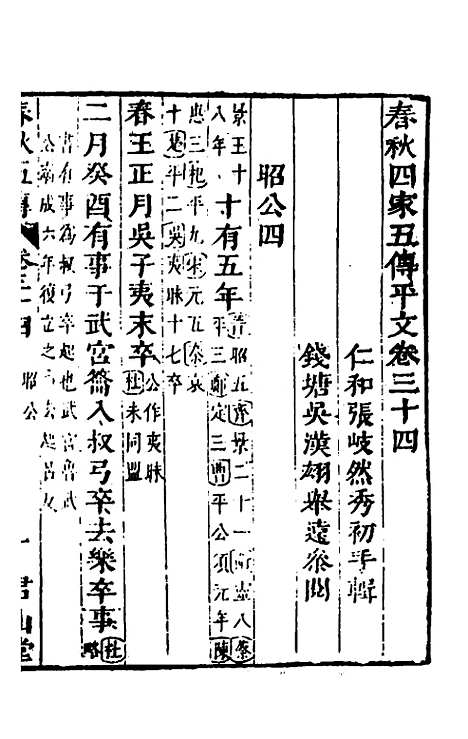 春秋四家五傳平文卷三十四
仁和張岐然秀初手輯
錢塘吳漢翊舉遠參閱
昭公四
景王十八年
十有五年
晉昭五齊景二十一衞靈八蔡平三鄭定三曹平公須元年陳惠三杞平九宋元五秦哀十楚平二吳夷昧十七卒
春王正月吳子夷末卒
公作夷昧
杜未同盟
二月癸酉有事于武宮籥入叔弓卒去樂卒事
杜略
書有事為叔弓卒起也武宮魯武
公廟成六年復立之
春秋五傳
卷三十四
昭公
一
君山堂